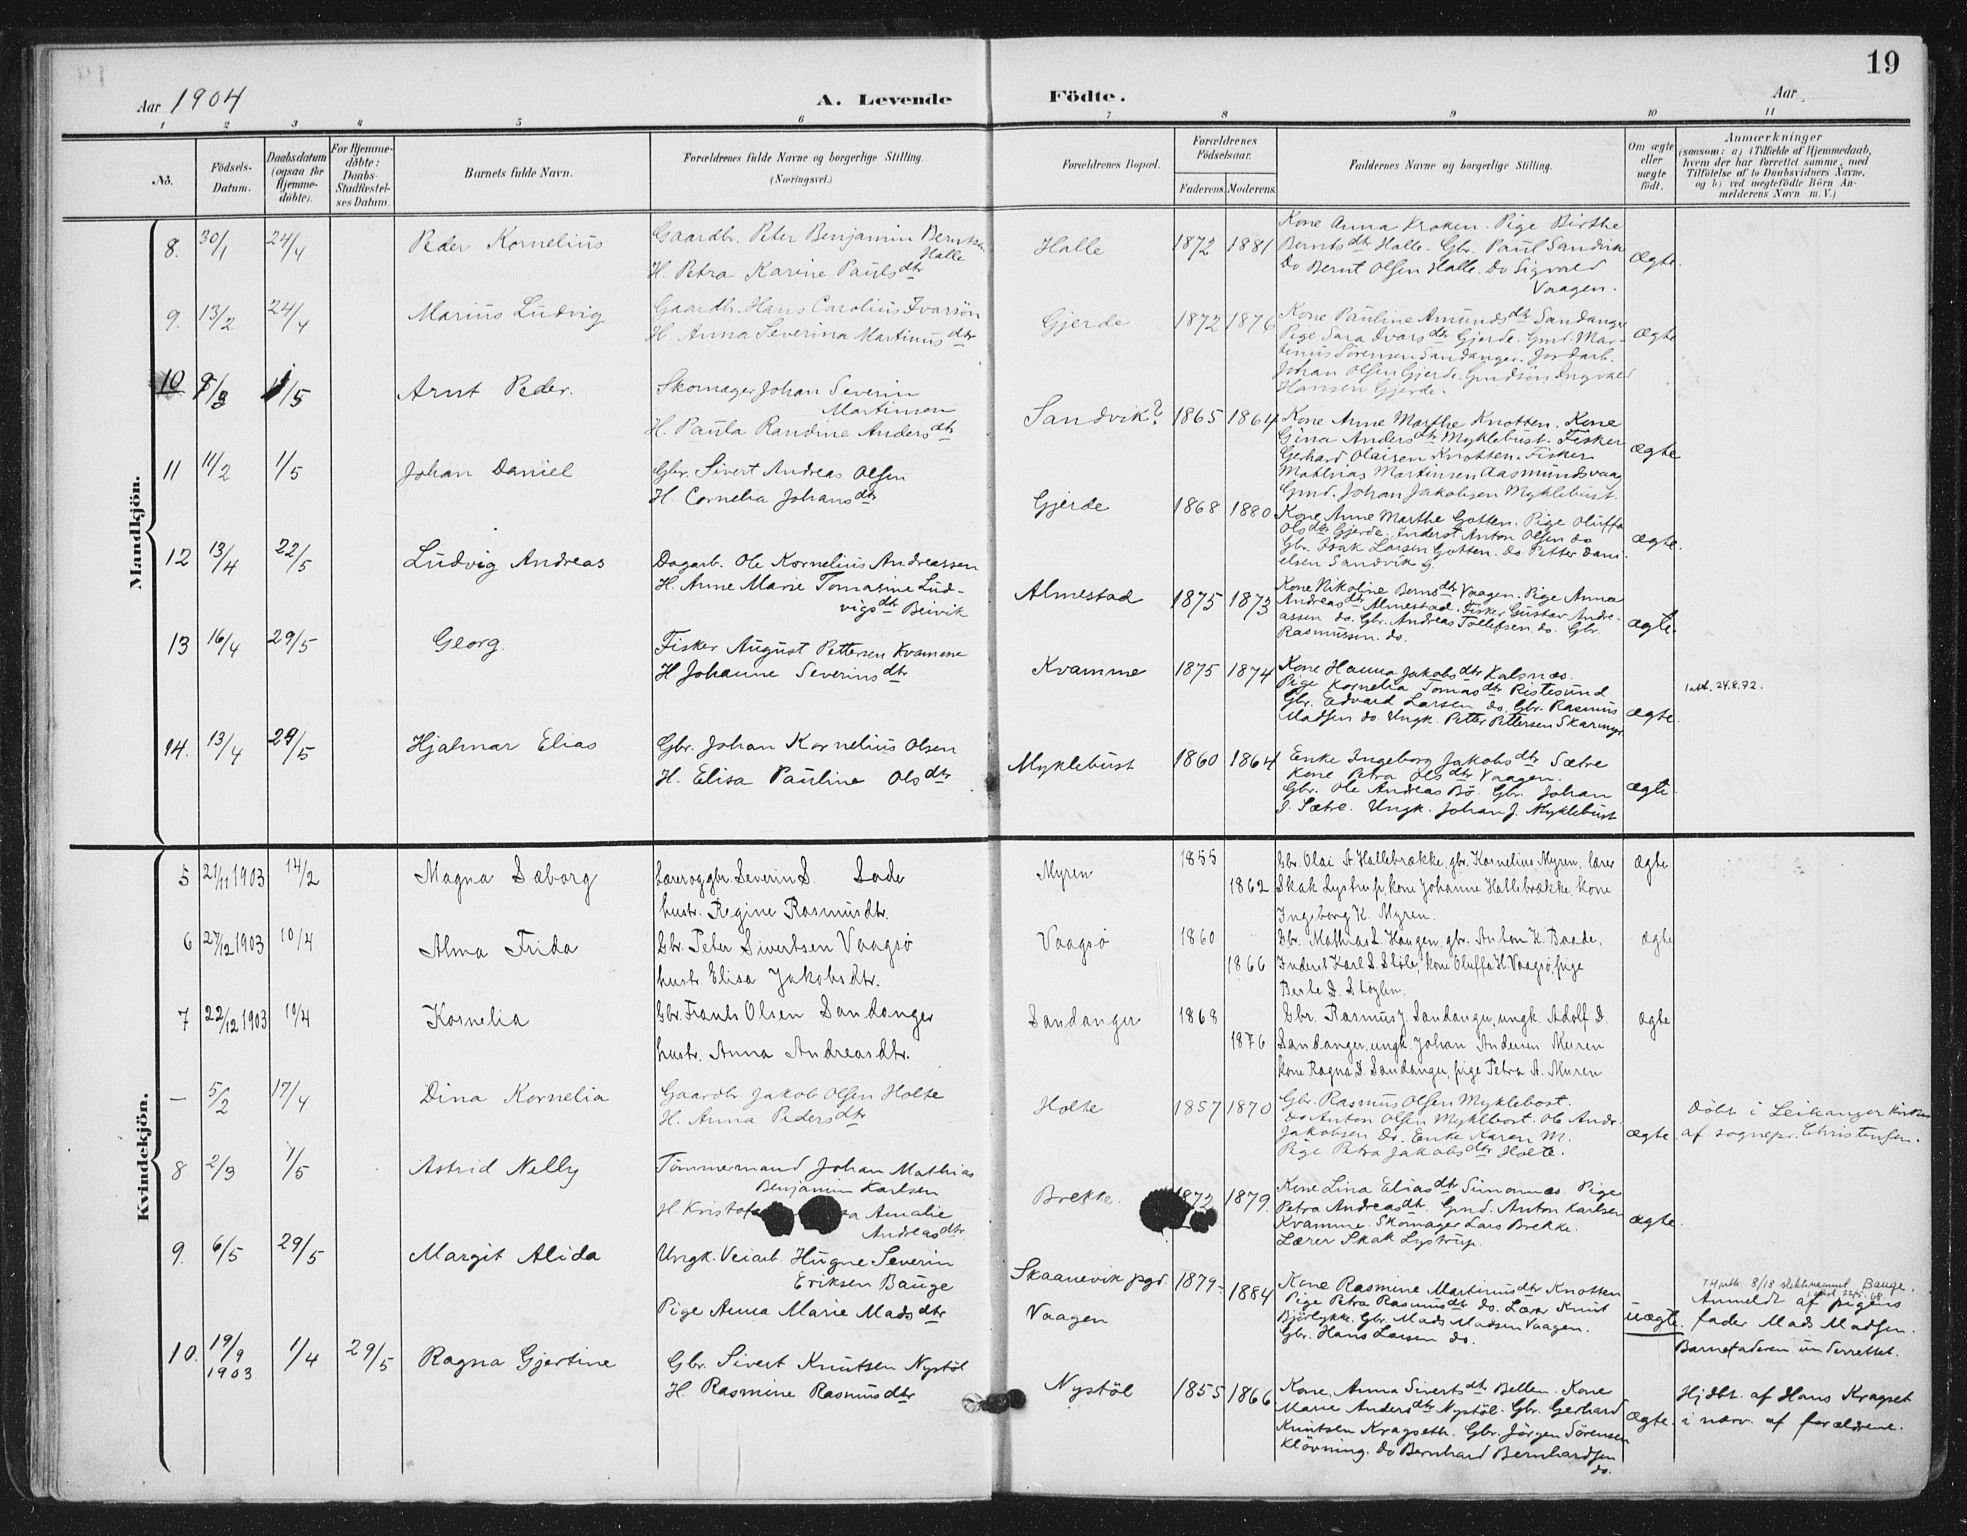 19
Aar 1904
A. Levende Födte.
Aar
1 2 3 4 5 6 7 8 9 10 11
No.
Födsels-Datum.
Daabsdatum (ogsaa for Hjemme-döbte).
For Hjemme-döbte: Daabs-Stadfæstelses Datum.
Barnets fulde Navn.
Forældrenes fulde Navne og borgerlige Stilling. (Næringsvei.)
Forældrenes Bopæl.
Forældrenes Födselsaar.
Faderens. Moderens.
Faddernes Navne og borgerlige Stilling.
Om ægte eller uægte födt.
Anmærkninger
(saasom: a) i Tilfælde af Hjemmedaab,
hvem der har forrettet samme, med
Tilföielse af to Daabsvidners Navne,
og b) ved uægtefödte Börn An-
melderens Navn m. V.)
Mandkjön.
8. 30/1 24/4 Peder Kornelius
Gaardbr. Peter Benjamin Berntsen
Halle
H. Petra Karine Paulsdtr
Halle 1872 1881
Kone Anna Kroken. Pige Birthe
Berntsdtr Halle. Gbr. Paul Sandvik
Do Bernt Olsen Halle. Do Sigvald
Vaagen.
ægte.
9. 13/2 24/4 Marius Ludvig
Gaardb. Hans Carolius Ivarsön
H. Anna Severina Martinusdtr
Gjerde 1872 1876
Kone Pauline Amundsdtr Sandanger
Pige Sara Ivarsdtr Gjerde. Gmd. Mar-
tinus Sörensen Sandanger. Jordarb.
Johan Olsen Gjerde. Gmdsön Ingvald
Hansen Gjerde.
ægte
10 8/3 1/5 Arnt Peder.
Skomager Johan Severin
Martinsen
H. Paula Randine Andersdtr
Sandvik? 1865 1864
Kone Anne Marthe Knotten. Kone
Gina Andersdtr Myklebust. Fisker
Gerhard Olaisen Knotten. Fisker
Mathias Martinsen Aasmundsvaag
Gmd. Johan Jakobsen Myklebust.
ægte
11 11/2 1/5 Johan Daniel
Gbr. Sivert Andreas Olsen
H. Cornelia Johansdtr
Gjerde 1868 1880
Kone Anne Marthe Gotten. Pige Oluffa
Olsdtr Gjerde. Inderst Anton Olsen do
Gbr. Isak Larsen Gotten. do Petter Dani-
elsen Sandvik
ægte.
12 13/4 22/5 Ludvig Andreas
Dagarb. Ole Kornelius Andreassen
H. Anne Marie Tomasine Lud-
vigsdtr Beivik
Almestad 1875 1873
Kone Nikoline Berns dtr Vaagen. Pige Anna
Andreasdtr Almestad. Fisker Gustav Andre-
assen do. Gbr. Andreas Tollefsen do. Gbr.
Rasmussen. do.
ægte.
13 16/4 29/5 Georg.
Fisker August Pettersen Kvamme
H. Johanne Severinsdtr
Kvamme 1875 1874
Kone Hanna Jakobsdtr Kalsnæs.
Pige Kornelia Tomasdtr Ristesund
Gbr. Edvard Larsen do. Gbr. Rasmus
Madsen do. Ungk. Petter Pettersen
ægte.
1 att. 24.8.72.
14. 13/4 29/5 Hjalmar Elias
Gbr. Johan Kornelius Olsen
H. Elisa Pauline Olsdtr
Myklebust 1860 1864
Enke Ingeborg Jakobsdtr Sætre
Kone Petra Olsdtr Vaagen.
Gbr. Ole Andreas Bö. Gbr. Johan
J. Sætre. Ungk. Johan J. Myklebust
ægte.
Kvindekjön.
5 21/11 1903 14/2 Magna Sæborg
Lærer og gbr. Severin S. Sade
hustr. Regine Rasmusdtr.
Myren 1855 1862
Gbr. Olai A. Hallebrække, gbr. Kornelius Myren, lærer
Skak Lystrup, kone Johanne Hallebrække, kone
Ingeborg K. Myren.
ægte
6 27/12 1903 10/4 Alma Frida
Gbr. Peter Sivertsen Vaagsö
hustr. Elisa Jakobsdtr.
Vaagsö 1860 1866
Gbr. Mathias L. Haugen, gbr. Anton K. Baade,
Inderst Karl S. Stöle, kone Oluffa H. Vaagsö, pige
Berte D.
ægte
7 22/12 1903 10/4 Kornelia
Gbr. Frants Olsen Sandanger
hustr. Anna Andreasdtr.
Sandanger 1868 1876
Gbr. Rasmus J. Sandanger, ungk. Adolf S.
Sandanger, ungk. Johan Andersen Muren
kone Ragna S. Sandanger, pige Petra A. Muren
ægte
— 5/2 17/4 Dina Kornelia
Gaardbr. Jakob Olsen Holte
H. Anna Pedersdtr
Holte 1857 1870
Gbr. Rasmus Olsen Myklebost.
Do Anton Olsen Myklebost. Ole Andr.
Jakobsen Do. Enke Karen M.
Pige Petra Jakobsdtr Holte.
ægte.
Döbt i Leikanger kirke
af sognepr. Christensen.
8 2/3 1/5 Astrid Nelly
Tömmermand Johan Mathias
Benjamin Karlsen
H. Kristof a Amalie
Andreasdtr
Brekke. 1872 1879.
Kone Lina Eliasdtr Simonnæs. Pige
Petra Andreasdtr. Gmd. Anton Karlsen
Kvamme. Skomager Lars Brekke.
Lærer Skak Lystrup.
ægte.
9. 6/5 29/5 Margit Alida
Ungk. Veiarb. Hugne Severin
Eriksen Bauge
Pige Anna Marie Madsdtr
Skaanevik pgd. 1879. 1884
Vaagen
Kone Rasmine Martinusdtr Knotten
Pige Petra Rasmusdtr do. Lærer Knut
Björlykke. Gbr. Mads Madsen Vaagen.
Gbr. Hans Larsen do.
uægte.
8/18 slektsnavnet Bauge.
Anmeldt af pigens
fader Mads Madsen.
Barnefaderen underrettet.
10. 19/9 1903. 1/4 29/5 Ragna Gjertine
Gbr. Sivert Knutsen Nystöl
H. Rasmine Rasmusdtr
Nystöl 1855 1866
Kone, Anna Sivertsdtr Bellen. Kone
Marie Andersdtr Nystöl. Gbr. Gerhard
Knutsen Kragseth. Gbr. Jörgen Sörensen
Klövning. Do Bernhard Bernhardsen
do.
ægte.
Hjdbt. af Hans Kragset
i nærv. af forældrene.